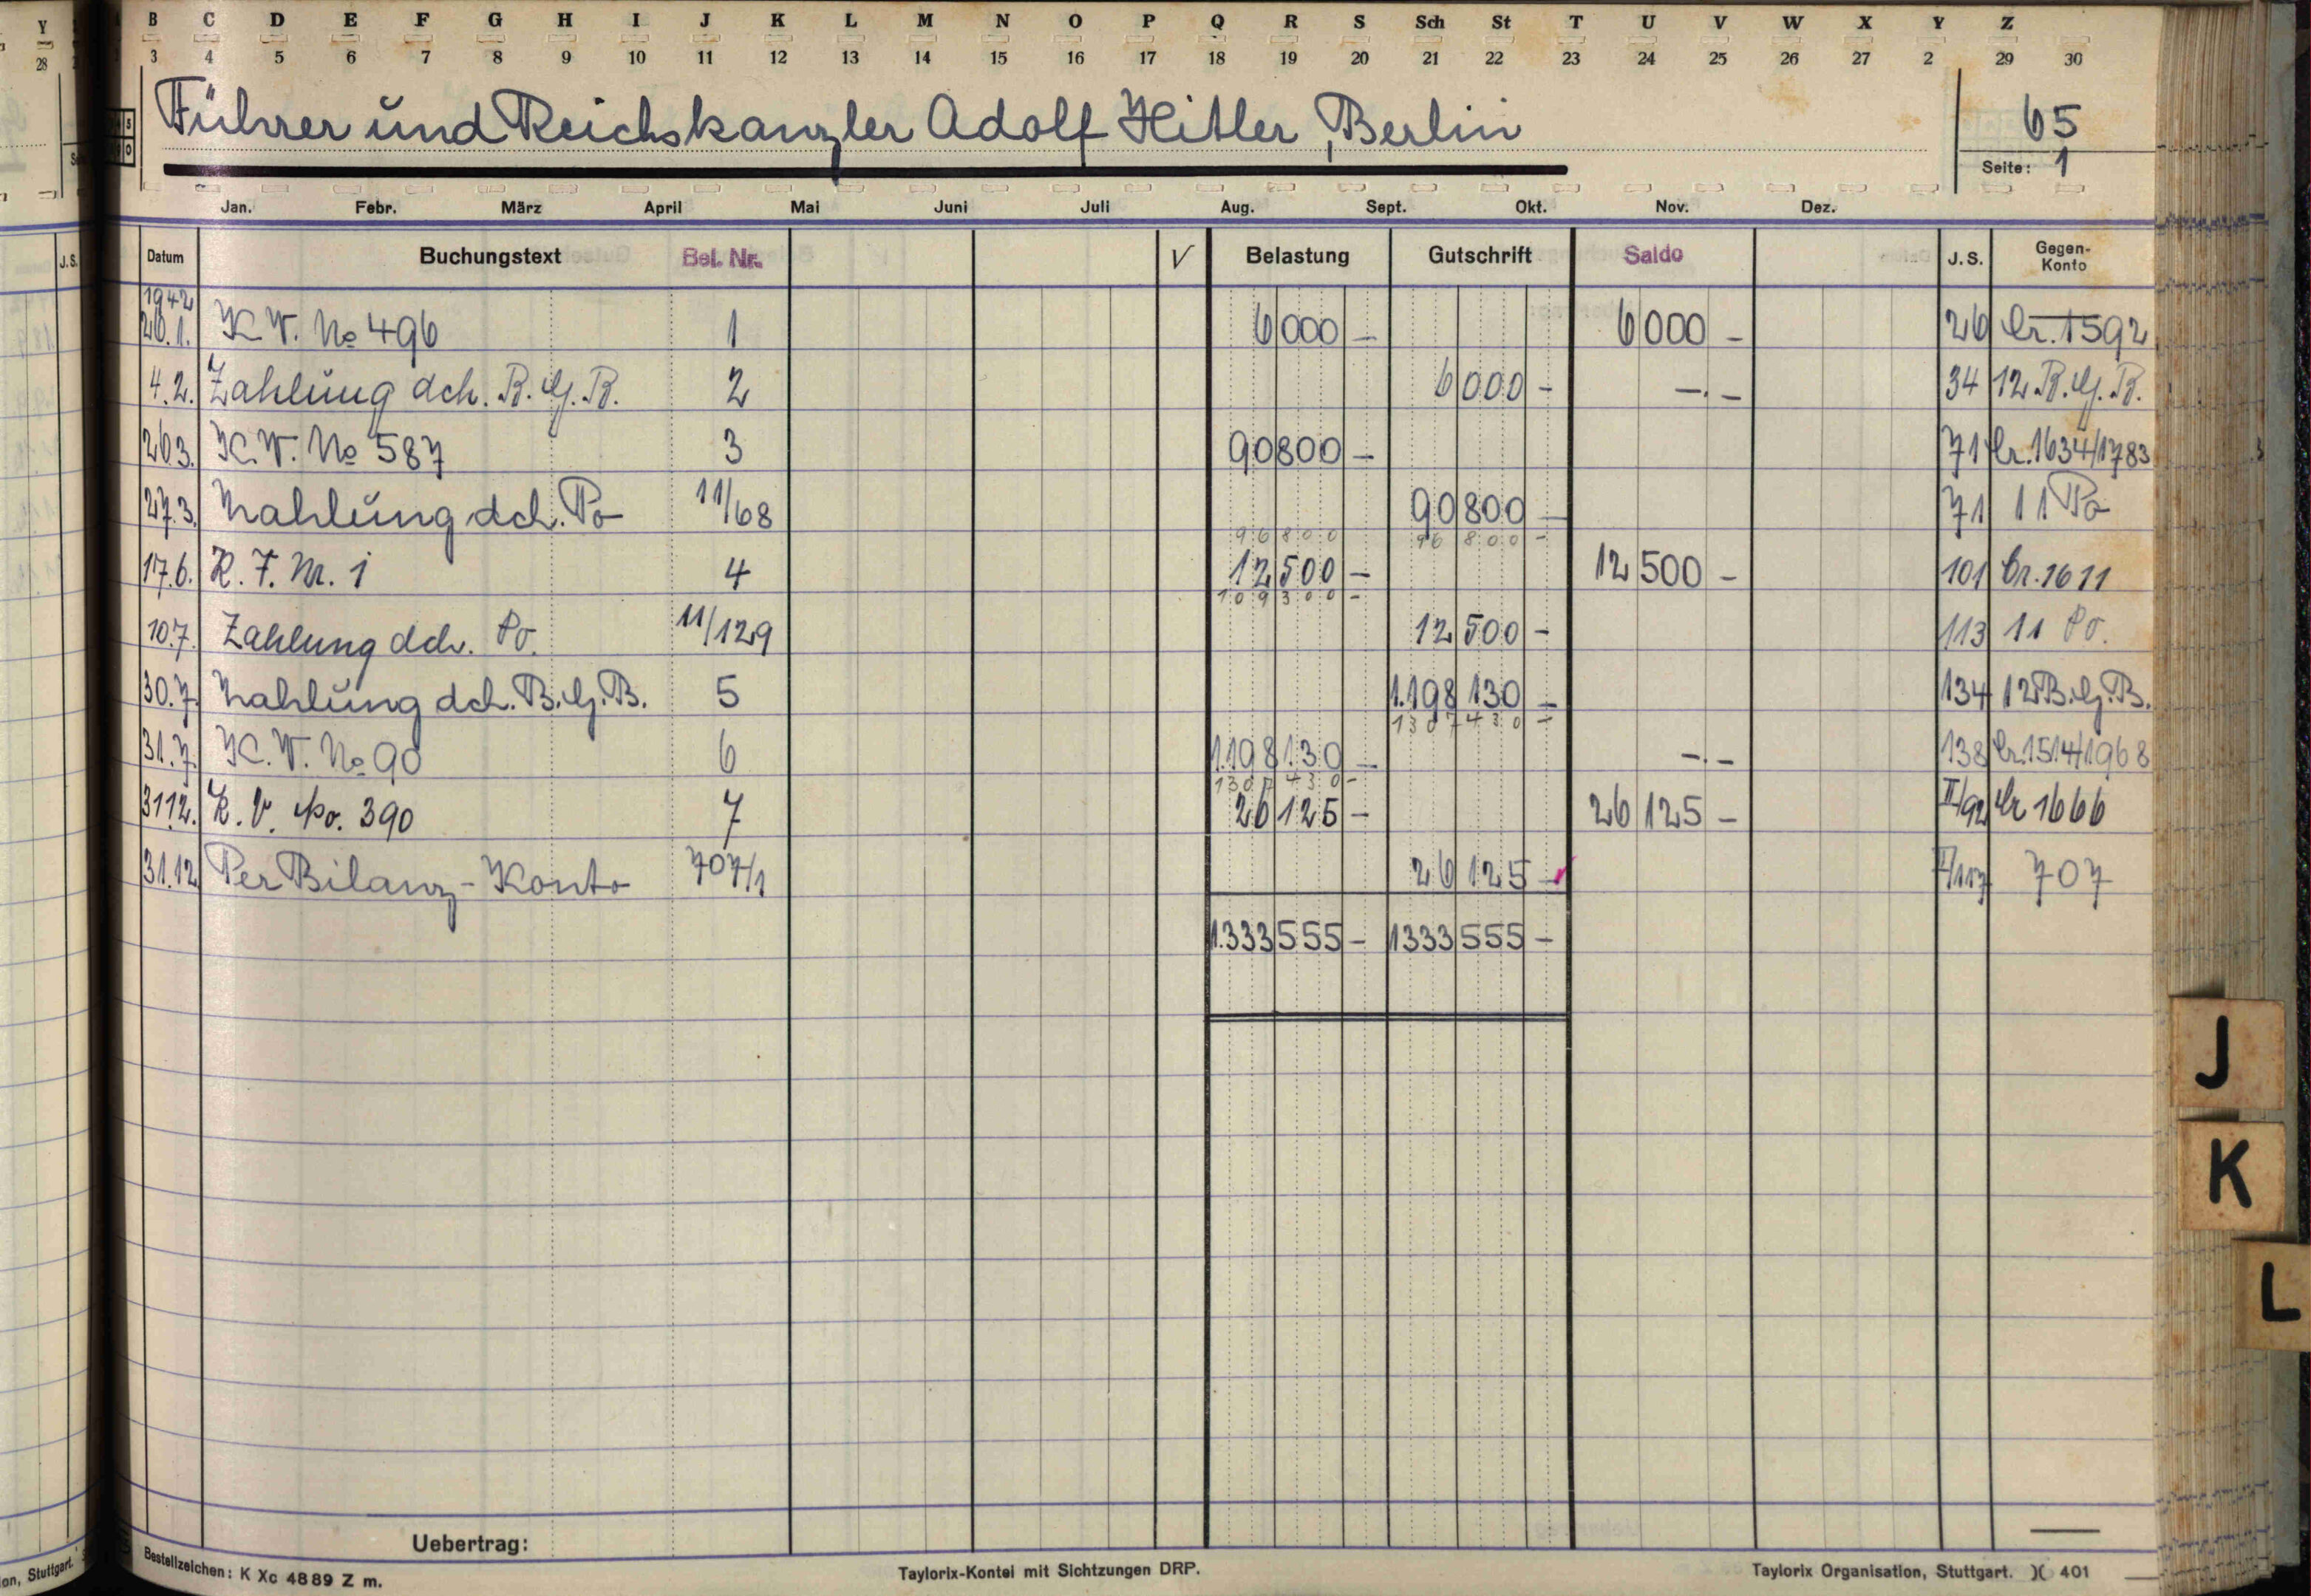 Y B C D E F G H I J K L M N O P Q R S Sch St T U V W X Y Z
28 3 4 5 6 7 8 9 10 11 12 13 14 15 16 17 18 19 20 21 22 23 24 25 26 27 2 29 30
Führer und Reichskanzler Adolf Hitler, Berlin
65
Seite: 1
Jan. Febr. März April Mai Juni Juli Aug. Sept. Okt. Nov. Dez.
J.S. Datum Buchungstext Bel. Nr. V Belastung Gutschrift Saldo J.S. Gegen-Konto
1942
26.1. K.V. No 496 1 6000 – 6000 – 26 Cr. 1592
4.2. Zahlung dch. B.G.B. 2 6000 – –.– 34 12 B.G.B.
26.3. K.V. No 587 3 90800 – 71 Cr. 1634/1783
27.3. Zahlung dch. Po 11/68 90800 – 71 11 Po
96800 96800 –
17.6. K.V. Nr. 1 4 12500 – 12500 – 101 Cr. 1611
109300 –
10.7. Zahlung dch. Po. 11/129 12500 – 113 11 Po.
30.7. Zahlung dch. B.G.B. 5 1.198130 – 134 12 B.G.B.
1307430 –
31.7. K.V. No 90 6 1.198130 – –.– 138 Cr. 1514/1968
1307430 –
31.12. K.V. No. 390 7 26125 – 26125 – II/92 Cr 1666
31.12. Per Bilanz-Konto 707/1 26125 – II/117 707
1.333555 – 1333555 –
J
K
L
Uebertrag:
Bestellzeichen: K Xc 4889 Z m.
Taylorix-Kontei mit Sichtzungen DRP.
Taylorix Organisation, Stuttgart. 401
on, Stuttgart.